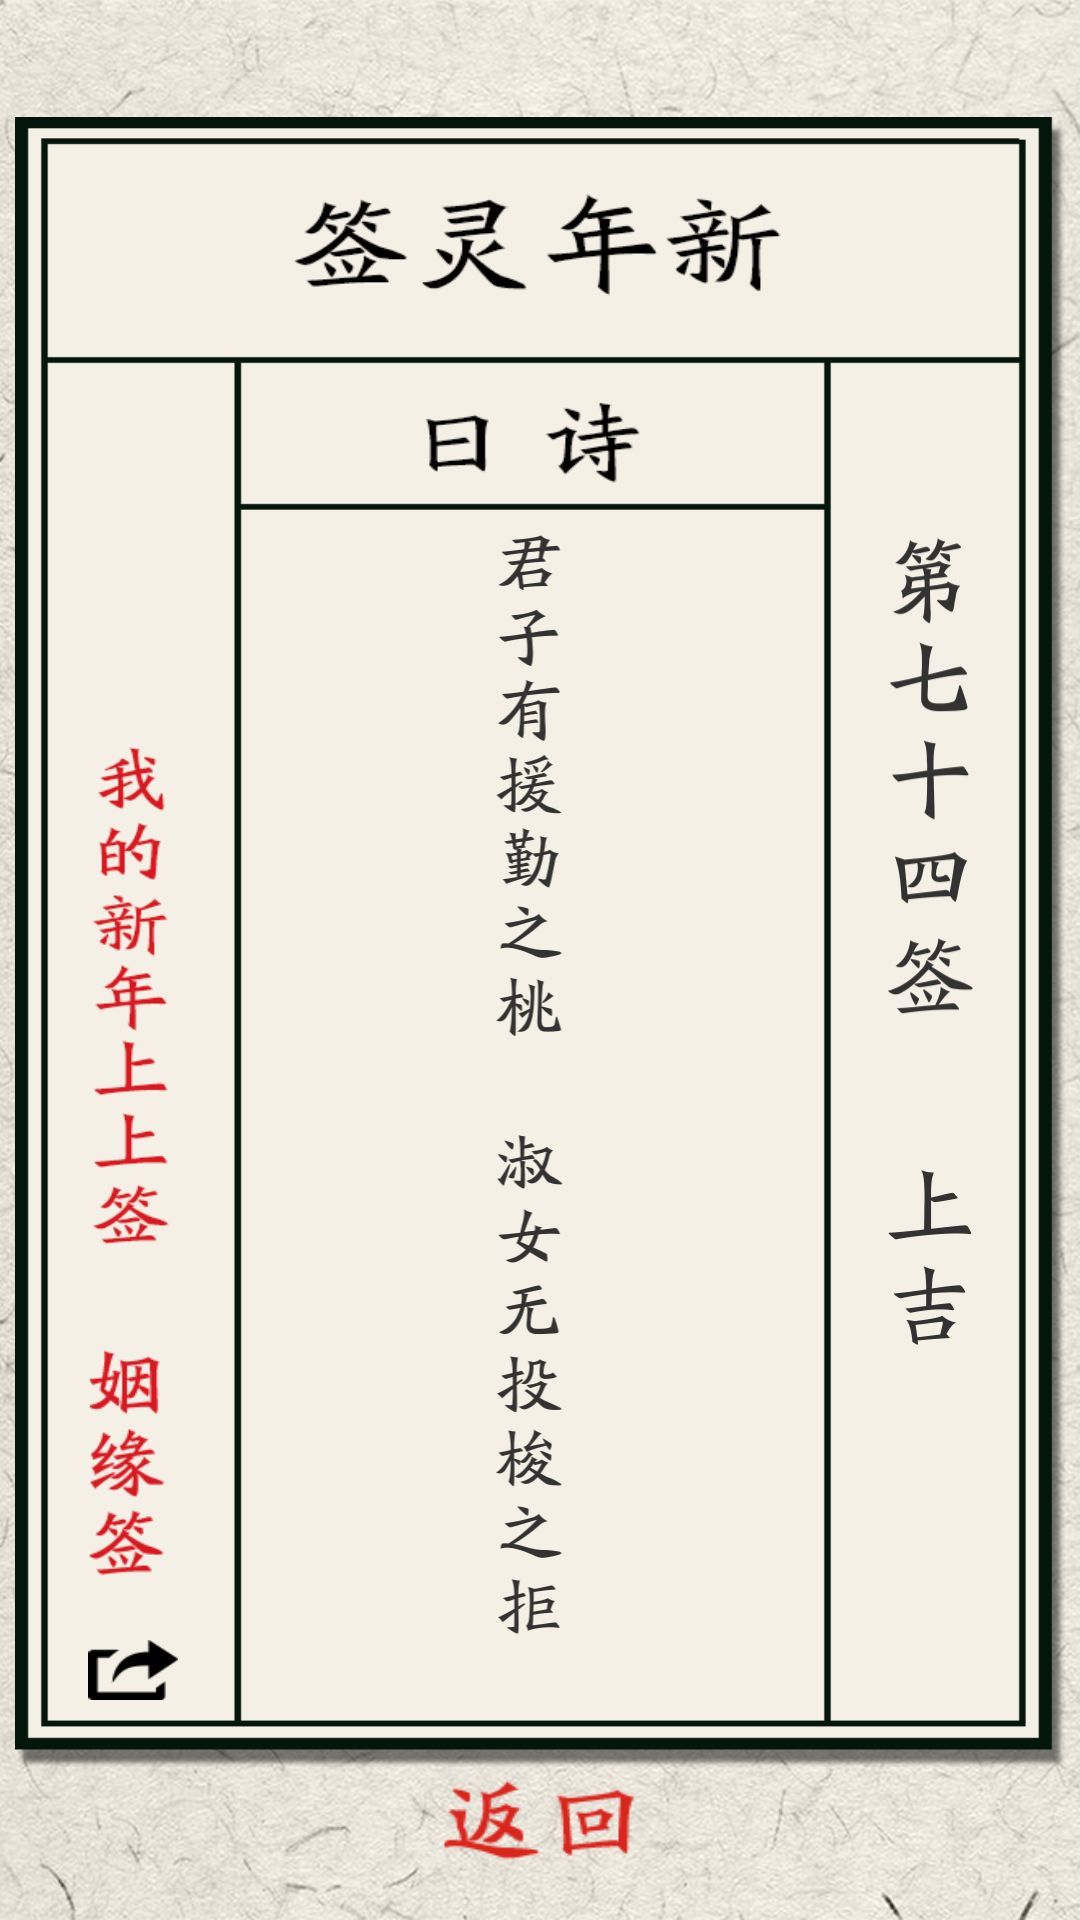 签灵年新
曰诗
第七十四签 上吉
君子有援勤之桃 淑女无投梭之拒
我的新年上上签 姻缘签
返回